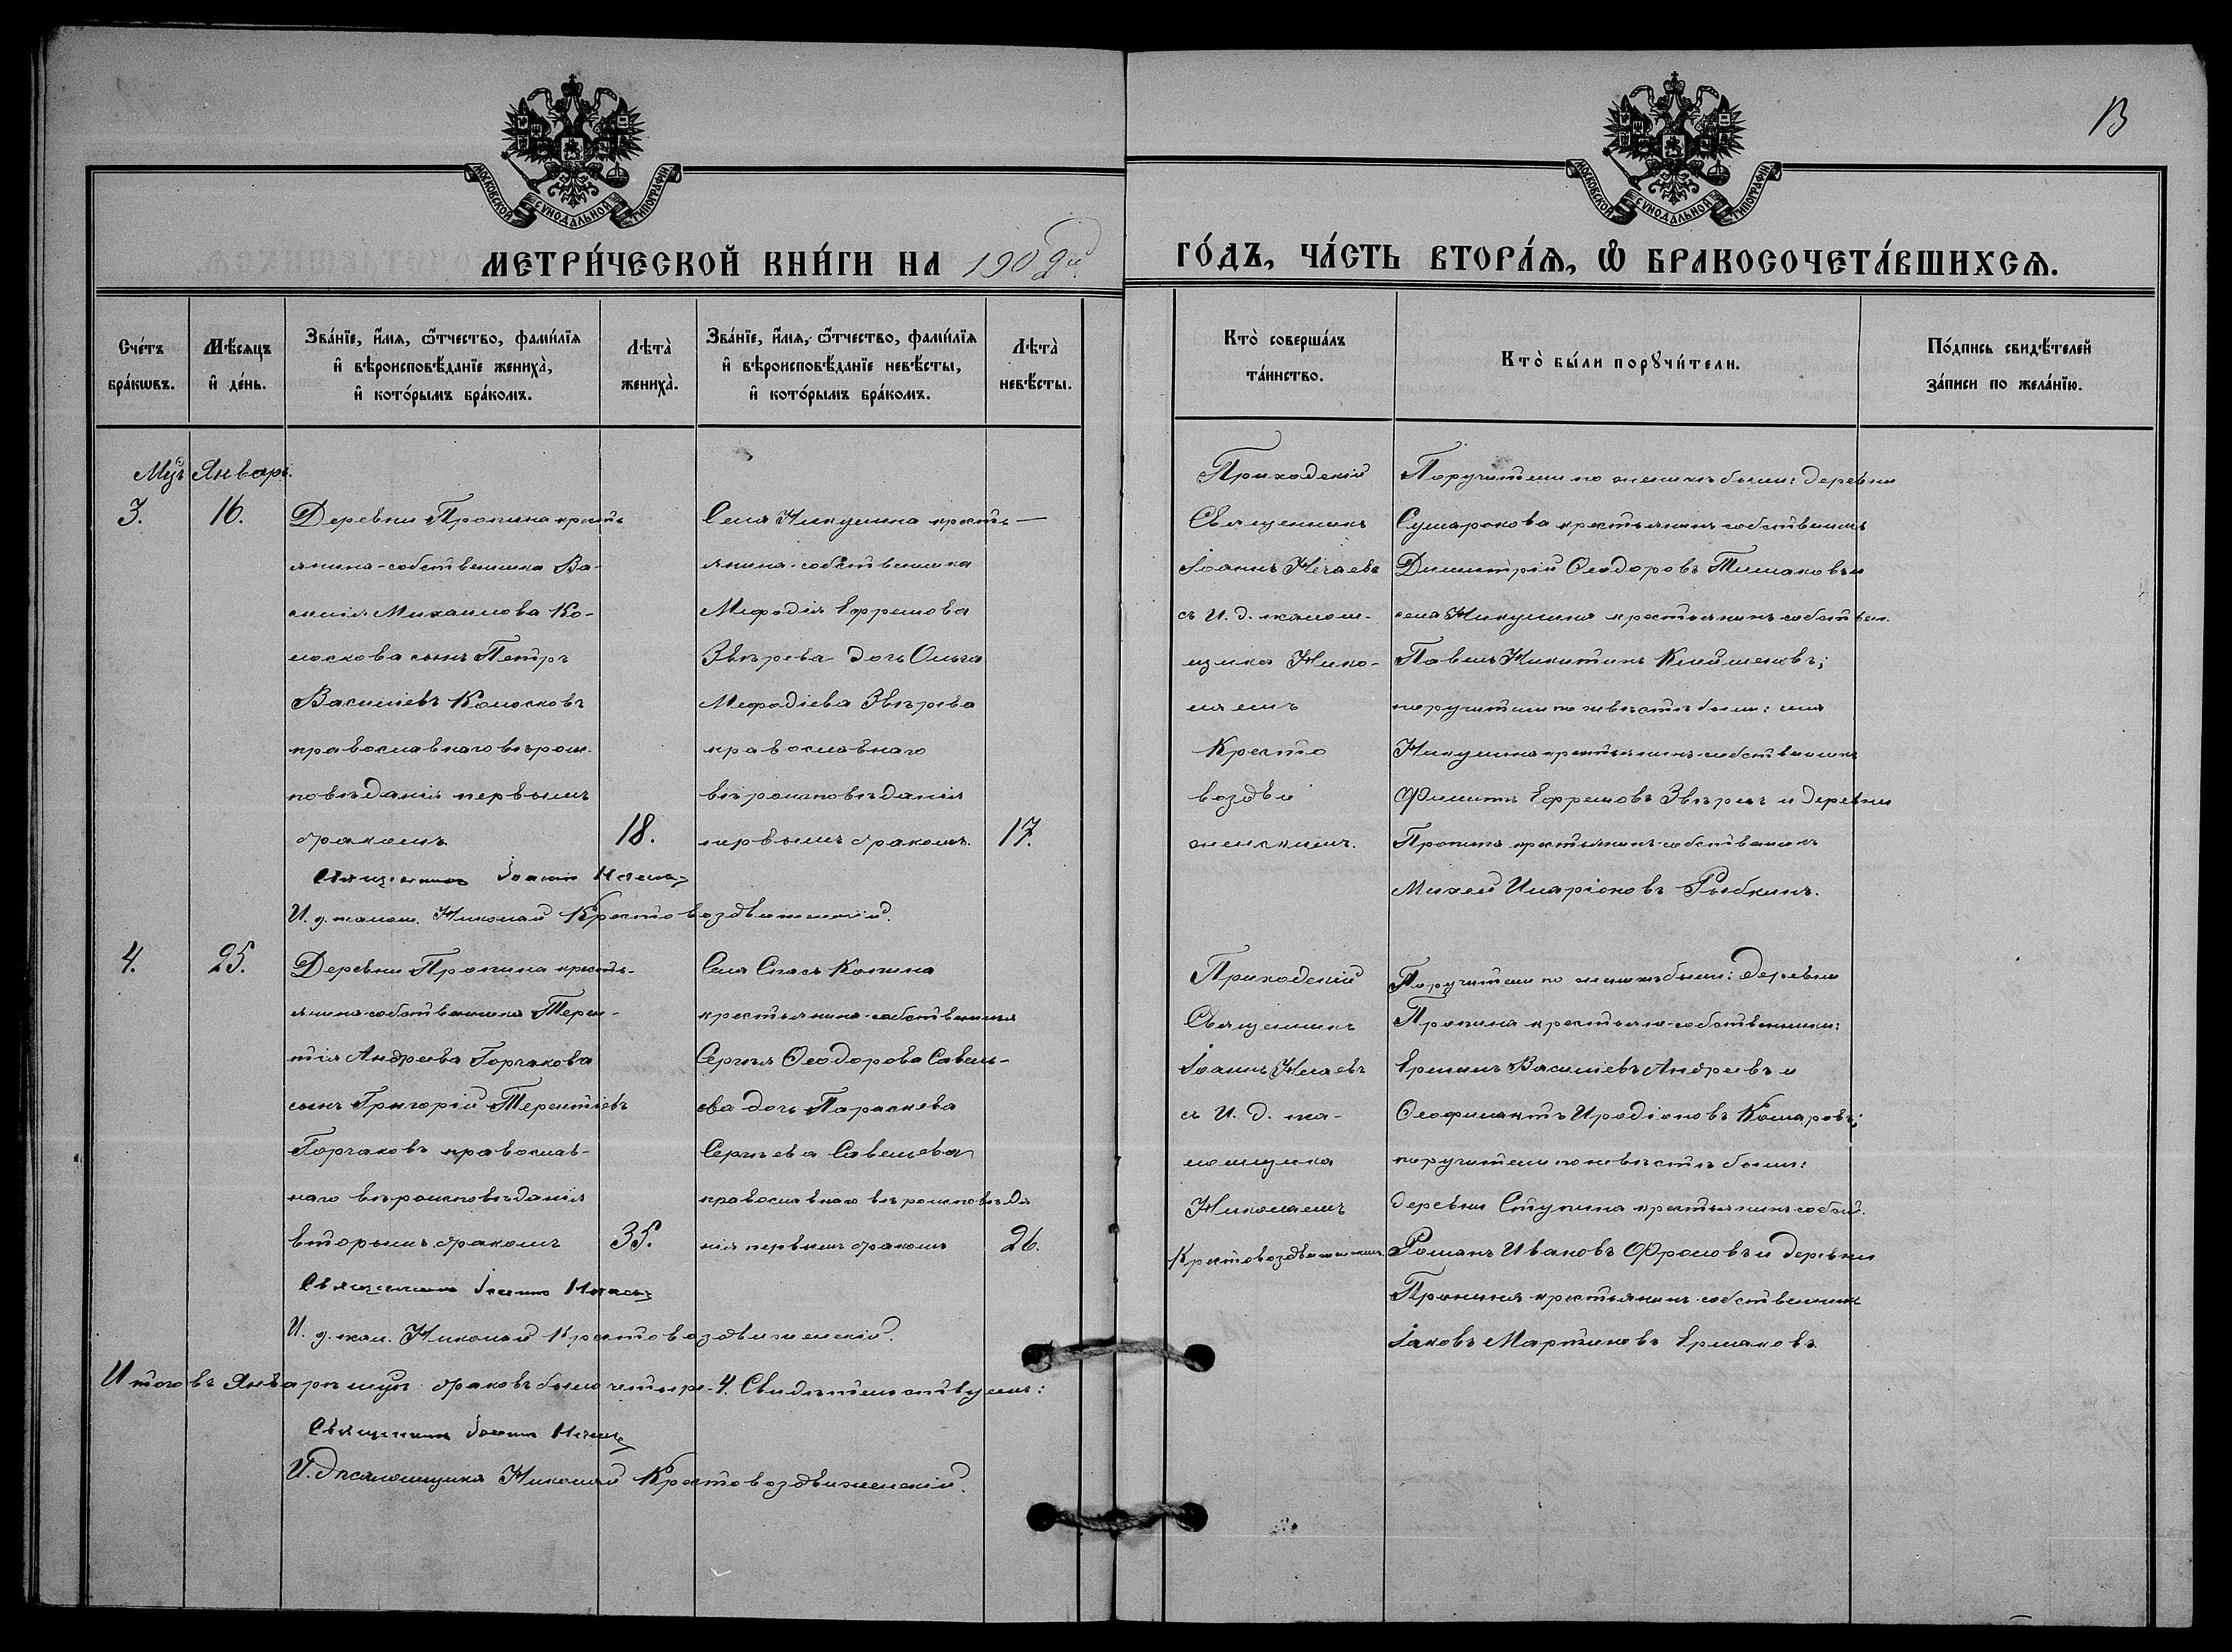 13
МОСКОВСКОЙ СѴНОДАЛЬНОЙ ТИПОГРАФІИ
МОСКОВСКОЙ СѴНОДАЛЬНОЙ ТИПОГРАФІИ
МЕТРИ́ЧЕСКОЙ КНИ́ГИ НА 1909й
ГО́ДЪ, ЧА́СТЬ ВТОРА́Ѧ, Ѽ БРАКОСОЧЕТА́ВШИХСѦ.
Сче́тъ бра́кѡвъ.
Мѣ́сяцъ и҆ де́нь.
Зва́нїе, и҆́мя, ѻ҆́тчество, фами́лїя
и҆ вѣроисповѣ́данїе жениха̀,
и҆ кото́рымъ бра́комъ.
Лѣта̀ жениха̀.
Зва́нїе, и҆́мя, ѻ҆́тчество, фами́лїя
и҆ вѣроисповѣ́данїе невѣ́сты,
и҆ кото́рымъ бра́комъ.
Лѣта̀ невѣ́сты.
Кто̀ соверша́лъ
та́инство.
Кто̀ бы́ли порꙋчи́тели.
По́дпись свидѣ́телей
за́писи по жела́нїю.
Мцъ Январь.
3.
16.
Деревни Пронина кресть
янина-собственника Ва-
силія Михаилова Ко-
лоскова сынъ Петръ
Василіевъ Колосковъ
православнаго вѣроис-
повѣданія первымъ
бракомъ
18.
Села Никулина кресть-
янина-собственника
Мефодія Ефремова
Звѣрева дочь Ольга
Мефодіева Звѣрева
православнаго
вѣроисповѣданія
первымъ бракомъ.
17.
Священникъ Іоаннъ Нечаевъ
И. д. псалом. Николай Крестовоздвиженскій.
Приходскій
Священникъ
Іоаннъ Нечаевъ
съ И. д. псалом-
щика Нико-
лаемъ
Кресто
воздви
женскимъ.
Поручители по женихѣ были: деревни
Сумарокова крестьянинъ-собственникъ
Димитрій Ѳеодоровъ Тимаковъ и
села Никулина крестьянинъ-собствен.
Павелъ Никитинъ Клейменовъ;
поручители по невѣстѣ были: села
Никулина крестьянинъ-собственникъ
Филиппъ Ефремовъ Звѣревъ и деревни
Пронина крестьянинъ-собственникъ
Михей Иларіоновъ Рыбкинъ.
4.
25.
Деревни Пронина кресть-
янина-собственника Терен-
тія Андреева Горчакова
сынъ Григорій Терентіевъ
Горчаковъ православ-
наго вѣроисповѣданія
вторымъ бракомъ
35.
Села Спаса Конина
крестьянина-собственника
Сергѣя Ѳеодорова Савель-
ева дочь Параскева
Сергѣева Савельева
православнаго вѣроисповѣда
нія первымъ бракомъ
26.
Священникъ Іоаннъ Нечаевъ
И. д. псал. Николай Крестовоздвиженскій.
Приходскій
Священникъ
Іоаннъ Нечаевъ
съ И. д. пса-
ломщика
Николаемъ
Крестовоздвиженскимъ
Поручители по женихѣ были: деревни
Пронина крестьяне-собственники:
Ермилъ Василіевъ Андреевъ и
Ѳеофилактъ Иродіоновъ Комаровъ;
поручители по невѣстѣ были:
деревни Ступина крестьянинъ-собст.
Романъ Ивановъ Фроловъ и деревни
Пронина крестьянинъ-собственникъ
Іаковъ Мартиновъ Ермаковъ.
Итого въ Январѣ мцѣ браковъ было четыре-4. Свидѣтельствуемъ:
Священникъ Іоаннъ Нечаевъ
И. д. псаломщика Николай Крестовоздвиженскій.